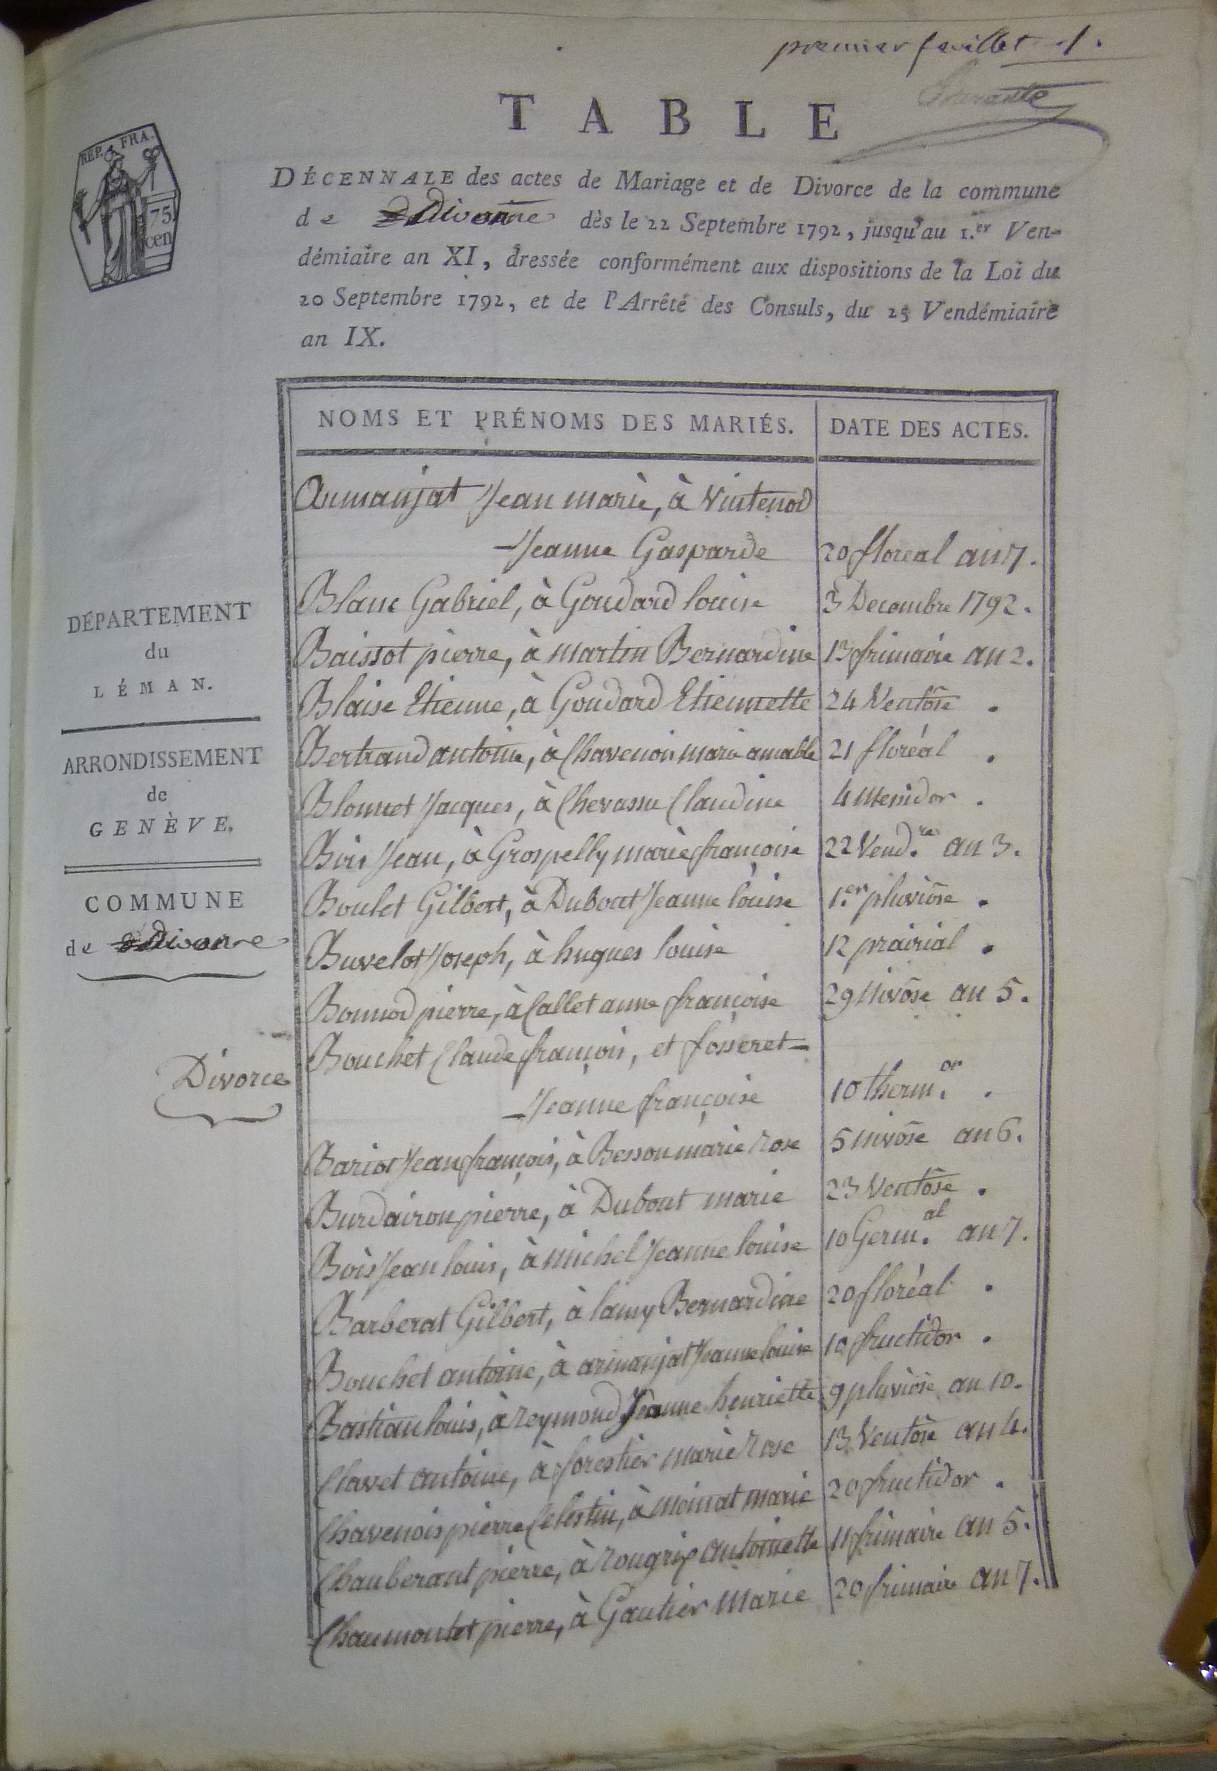 premier feuillet 1.
TABLE
REP. FRA.
75
cen
DÉCENNALE des actes de Mariage et de Divorce de la commune
de Divonne dès le 22 Septembre 1792, jusqu'au 1.er Ven-
démiaire an XI, dressée conformément aux dispositions de la Loi du
20 Septembre 1792, et de l'Arrêté des Consuls, du 25 Vendémiaire
an IX.
NOMS ET PRÉNOMS DES MARIÉS. DATE DES ACTES.
Armanjat Jean marie, à Vintenod
Jeanne Gasparde 20 floreal an 7.
Blanc Gabriel, à Goudard louise 3 Decembre 1792.
Baissot pierre, à martin Bernardine 13 frimaire an 2.
Blaise Etienne, à Goudard Etiennette 24 Ventôse .
Bertrand antoine, à Chavenois marie amable 21 floréal .
Blonnet Jacques, à Chevassu Claudine 4 Messidor .
Bois Jean, à Grospelly marie françoise 22 Vend.re an 3.
Boulet Gilbert, à Dubout Jeanne louise 1.er pluviôse .
Buvelot Joseph, à hugues louise 12 prairial .
Bonnod pierre, à Callet anne françoise 29 Nivôse an 5.
Bouchet Claude françois, et fosseret-
Jeanne françoise 10 therm.or .
Bariot Jean françois, à Besson marie rose 5 nivôse an 6.
Burdairon pierre, à Dubout marie 23 Ventôse .
Bois Jean louis, à michel Jeanne louise 10 Germ.al an 7.
Barberat Gilbert, à lamy Bernardine 20 floréal .
Bouchet antoine, à armanjat Jeanne louise 10 fructidor .
Bastian louis, à reymond Jeanne henriette 9 pluviôse an 10.
Clavet antoine, à forestier marie rose 13 Ventôse an 4.
Chavenois pierre Celestin, à moinat marie 20 fructidor .
Chauberant pierre, à rougrix antoinette 11 frimaire an 5.
Chaumontet pierre, à Gautier marie 20 frimaire an 7.
DÉPARTEMENT
du
LÉMAN.
ARRONDISSEMENT
de
GENÈVE.
COMMUNE
de Divonne
Divorce